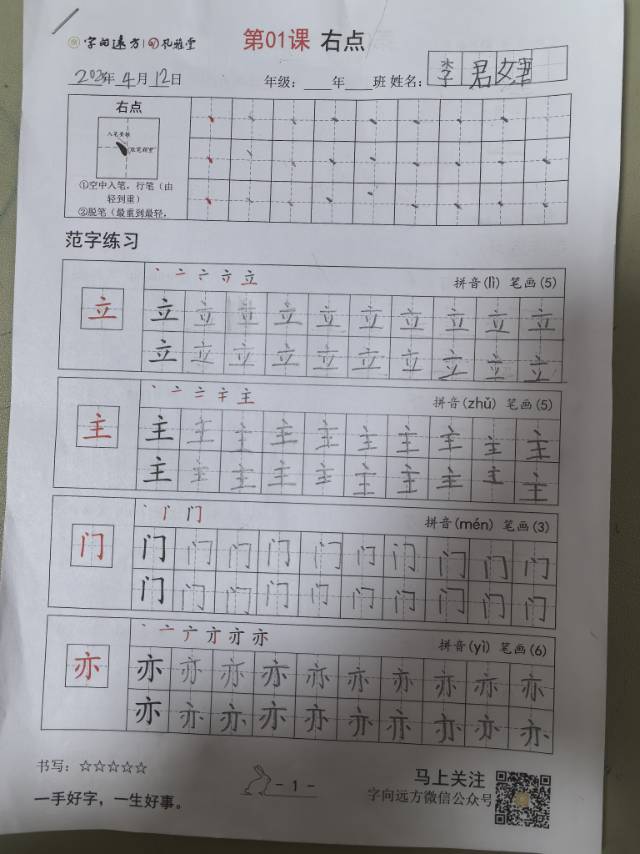 字向远方 孔苑堂 第01课 右点
年4月12日 年级：____年____班 姓名：李君
右点
①空中入笔，行笔（由
轻到重）
②脱笔（最重到最轻，
范字练习
立 拼音(lì) 笔画(5)
立 立 立 立 立 立 立 立 立 立
立 立 立 立 立 立 立 立 立 立
主 拼音(zhǔ) 笔画(5)
主 主 主 主 主 主 主 主 主 主
主 主 主 主 主 主 主 主 主 主
门 拼音(mén) 笔画(3)
门 门 门 门 门 门 门 门 门 门
门 门 门 门 门 门 门 门 门 门
亦 拼音(yì) 笔画(6)
亦 亦 亦 亦 亦 亦 亦 亦 亦 亦
亦 亦 亦 亦 亦 亦 亦 亦 亦 亦
书写：☆☆☆☆☆
一手好字，一生好事。
- 1 -
马上关注
字向远方微信公众号